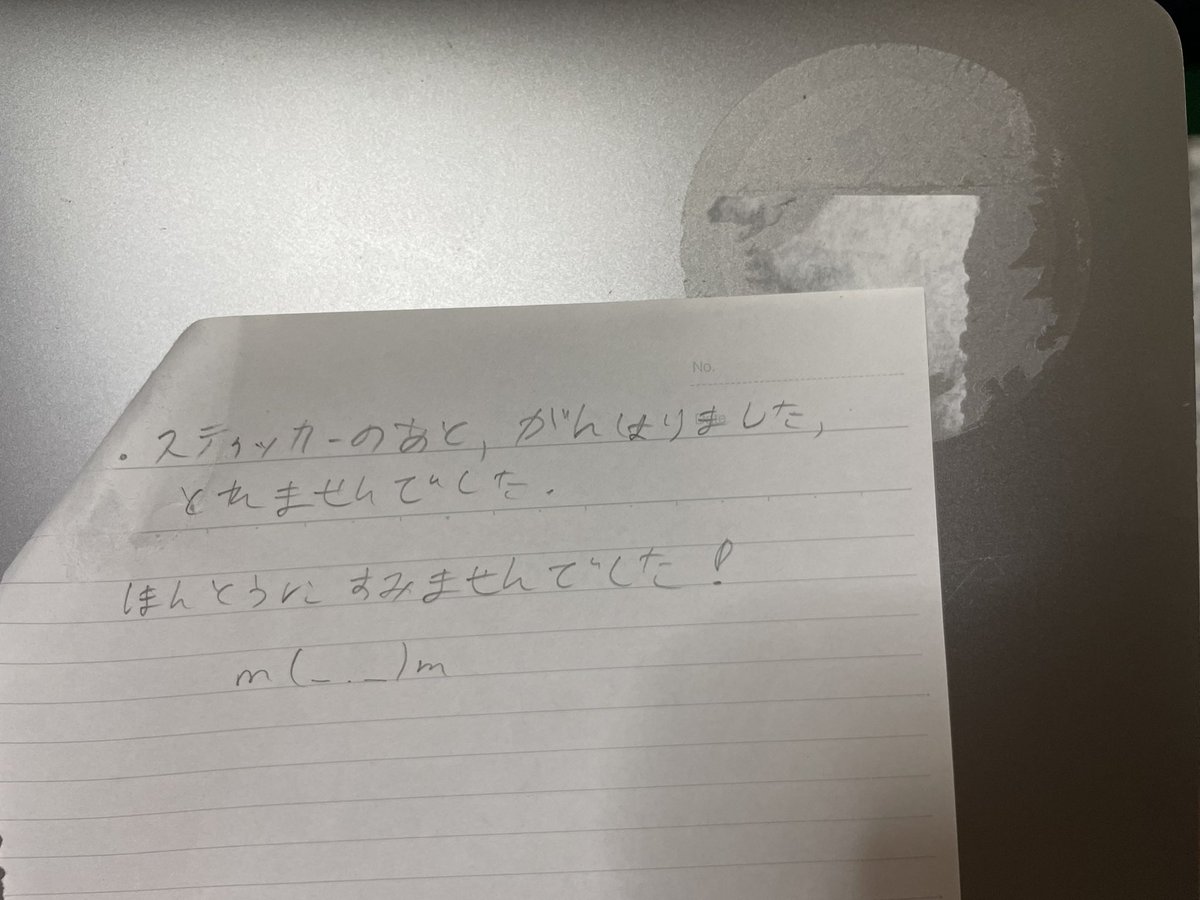 No.
・スティッカーのあと, がんはりました,
とれませんでした.
ほんとうに すみませんでした!
m(_._)m